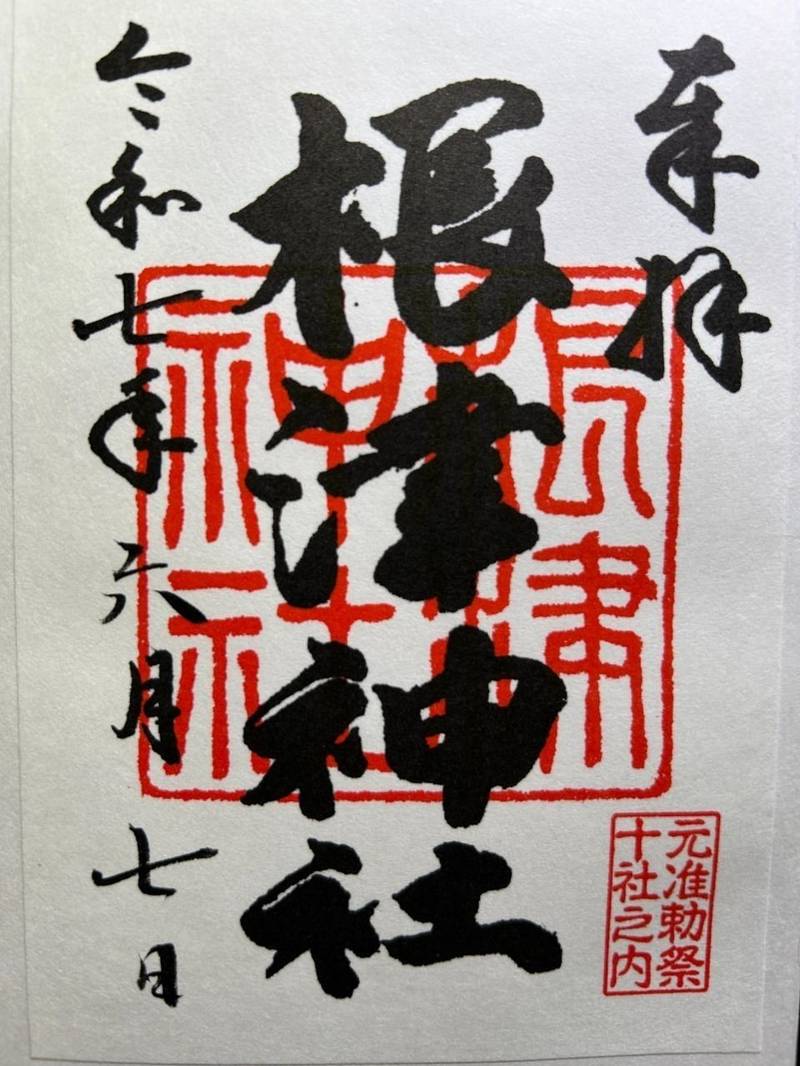 奉拝
根津神社
令和七年六月七日
根津
神社
元准勅祭
十社之内